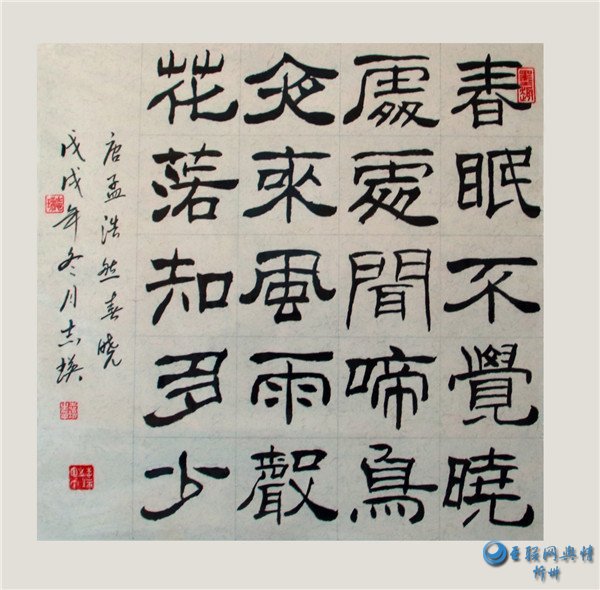 春眠不覺曉
處處聞啼鳥
夜來風雨聲
花落知多少
唐孟浩然春曉
戊戌年冬月志瑛
互联网舆情
忻州